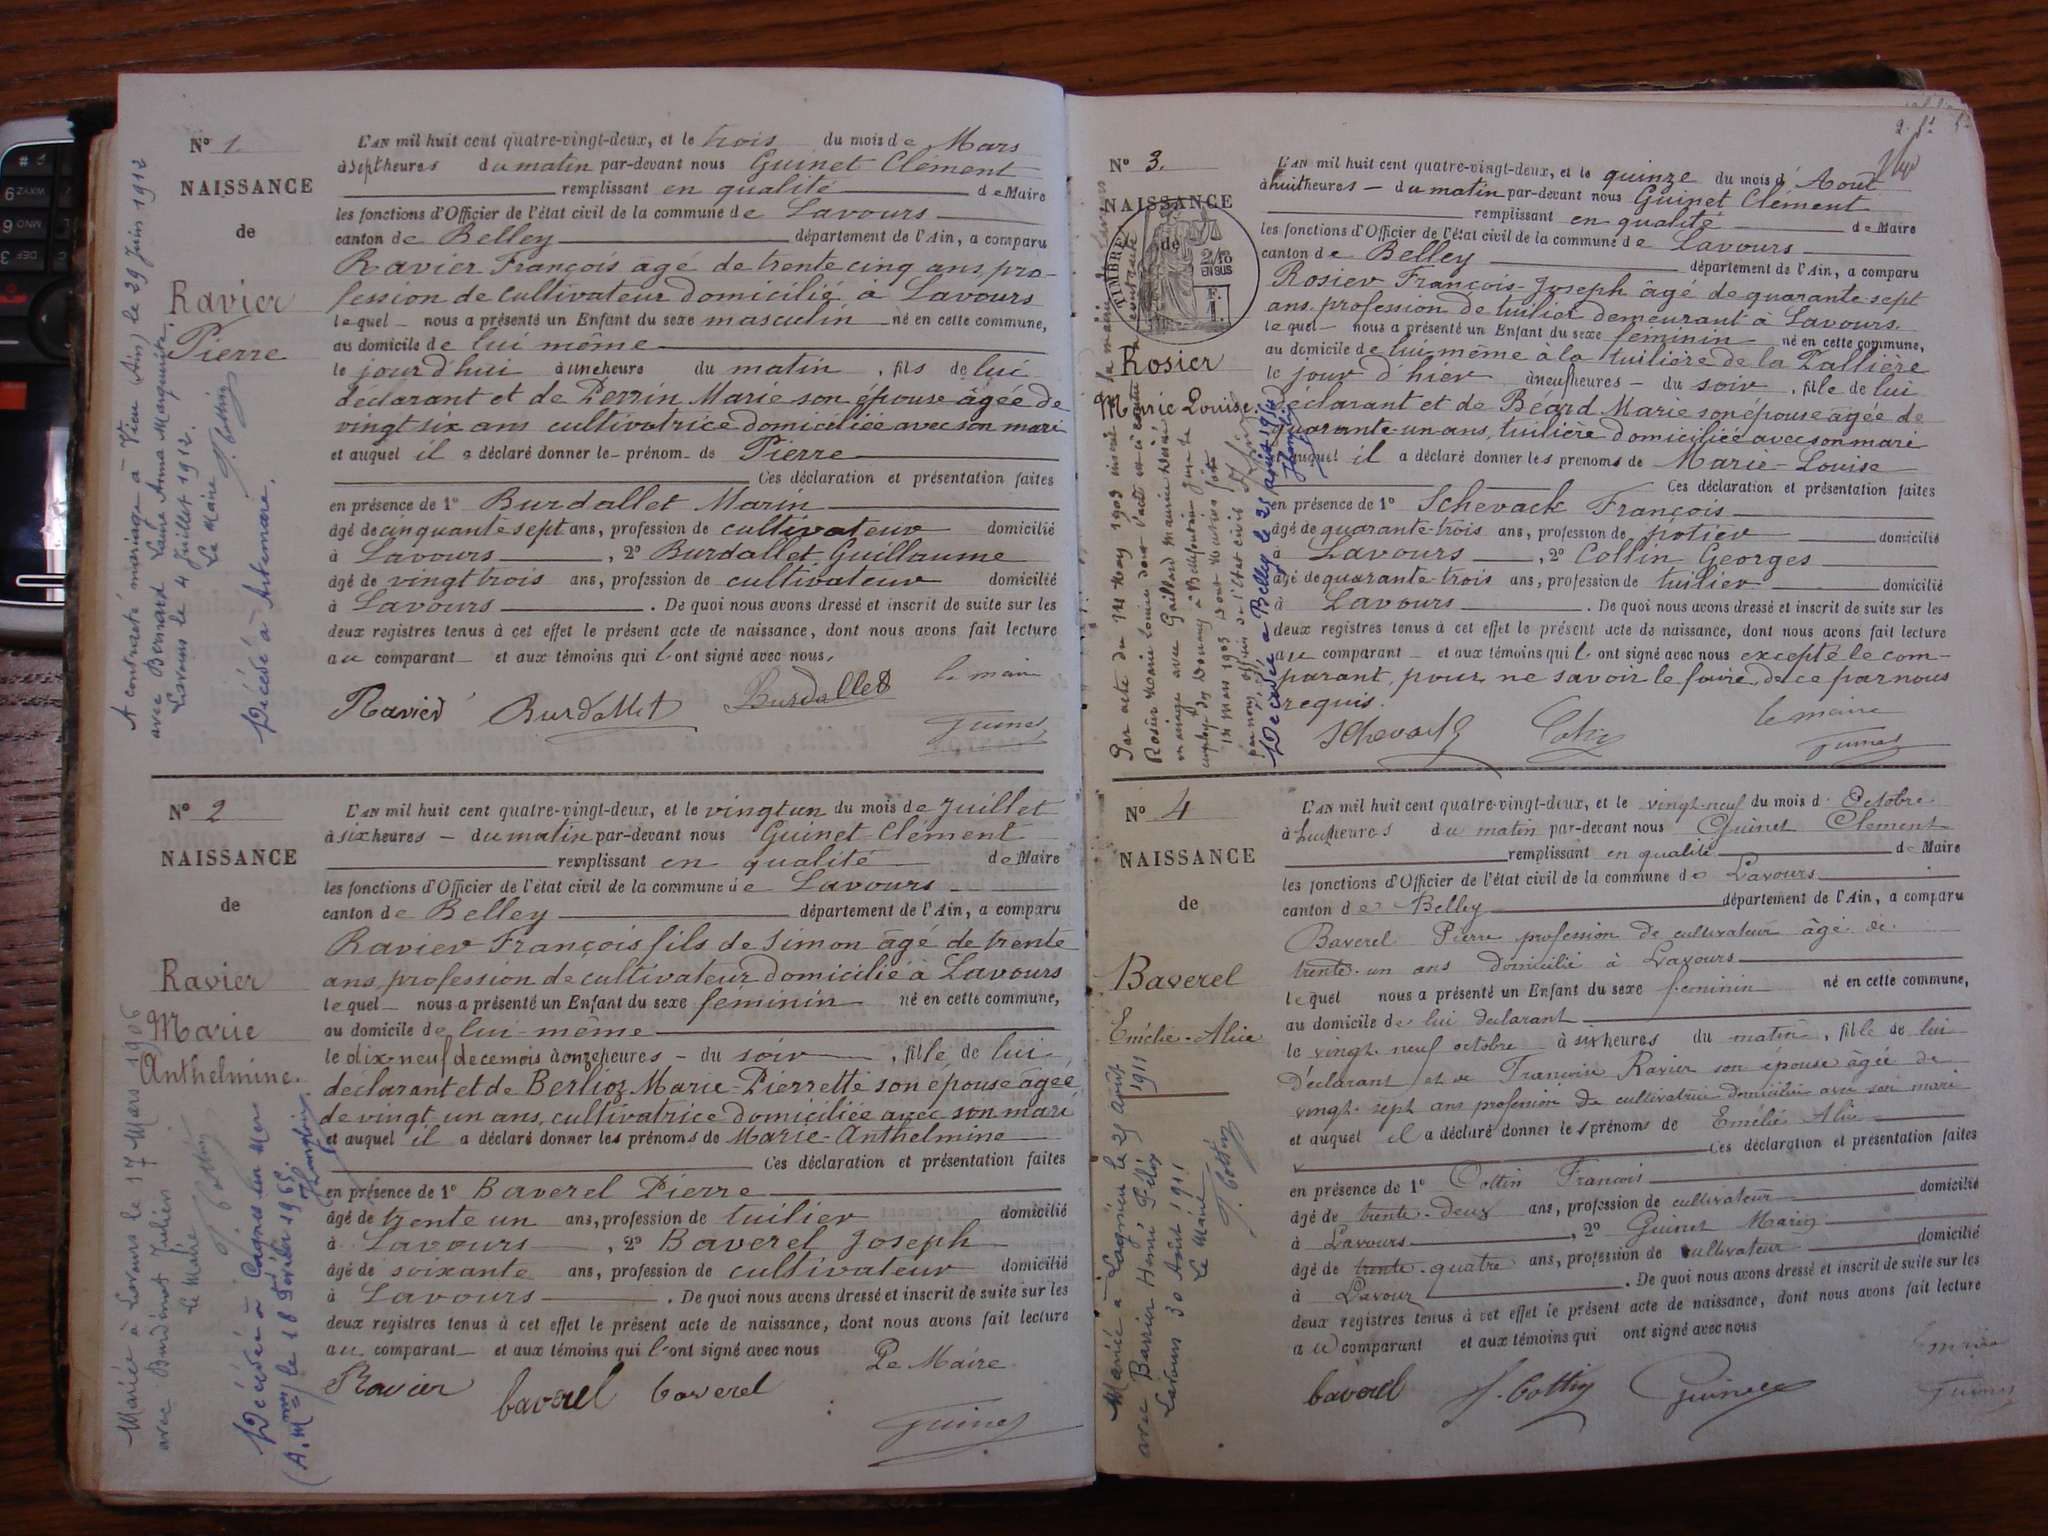 N° 1
NAISSANCE
de
Ravier
Pierre
A contracté mariage à Vieu (Ain) le 29 Juin 1912
avec Bernard Laure Anna Marguerite.
Lavours le 4 Juillet 1912.
Le Maire
J. Cottin
Décédé à Artemare.
L'AN mil huit cent quatre-vingt-deux, et le trois du mois de Mars
à sept heures du matin par-devant nous Guinet Clément
remplissant en qualité de Maire
les fonctions d'Officier de l'état civil de la commune de Lavours
canton de Belley département de l'Ain, a comparu
Ravier François âgé de trente cinq ans pro-
fession de cultivateur domicilié à Lavours
lequel nous a présenté un Enfant du sexe masculin né en cette commune,
au domicile de lui même
le jour d'hui à une heure du matin, fils de lui
déclarant et de Perrin Marie son épouse âgée de
vingt six ans cultivatrice domiciliée avec son mari
et auquel il a déclaré donner le prénom de Pierre
Ces déclaration et présentation faites
en présence de 1° Burdallet Marin
âgé de cinquante sept ans, profession de cultivateur domicilié
à Lavours, 2° Burdallet Guillaume
âgé de vingt trois ans, profession de cultivateur domicilié
à Lavours. De quoi nous avons dressé et inscrit de suite sur les
deux registres tenus à cet effet le présent acte de naissance, dont nous avons fait lecture
au comparant et aux témoins qui l'ont signé avec nous.
Ravier Burdallet Burdallet le maire
Guinet
N° 2
NAISSANCE
de
Ravier
Marie
Anthelmine.
Mariée à Lavours le 17 Mars 1906
avec Budinot Julien
Le Maire
J. Cottin
Décédée à Cagnes sur Mer
(A. Mmes) le 18 Février 1965.
L'AN mil huit cent quatre-vingt-deux, et le vingt un du mois de Juillet
à six heures du matin par-devant nous Guinet Clément
remplissant en qualité de Maire
les fonctions d'Officier de l'état civil de la commune de Lavours
canton de Belley département de l'Ain, a comparu
Ravier François fils de Simon âgé de trente
ans, profession de cultivateur domicilié à Lavours
lequel nous a présenté un Enfant du sexe feminin né en cette commune,
au domicile de lui-même
le dix neuf de ce mois à onze heures du soir, fille de lui
déclarant et de Berlioz Marie-Pierrette son épouse âgée
de vingt un ans, cultivatrice domiciliée avec son mari
et auquel il a déclaré donner les prénoms de Marie-Anthelmine
Ces déclaration et présentation faites
en présence de 1° Baverel Pierre
âgé de trente un ans, profession de tuilier domicilié
à Lavours, 2° Baverel Joseph
âgé de soixante ans, profession de cultivateur domicilié
à Lavours. De quoi nous avons dressé et inscrit de suite sur les
deux registres tenus à cet effet le présent acte de naissance, dont nous avons fait lecture
au comparant et aux témoins qui l'ont signé avec nous
Le Maire
Ravier baverel baverel
Guinet
N° 3.
NAISSANCE
de
TIMBRE
2/10
EN SUS
Rosier
Marie Louise
Par acte du 14 mars 1903 inscrit
Rosier Marie Louise dont l'acte est ci contre
mariage avec Gaillard Maurice Désiré
14 Mars 1903
par nous officier de l'état civil
Décédée à Belley le
L'AN mil huit cent quatre-vingt-deux, et le quinze du mois d'Août
à huit heures du matin par-devant nous Guinet Clément
remplissant en qualité de Maire
les fonctions d'Officier de l'état civil de la commune de Lavours
canton de Belley département de l'Ain, a comparu
Rosier François-Joseph âgé de quarante sept
ans, profession de tuilier demeurant à Lavours
lequel nous a présenté un Enfant du sexe féminin né en cette commune,
au domicile de lui même à la tuilière de la Pallière
le jour d'hier à neuf heures du soir, fille de lui
déclarant et de Béard Marie son épouse âgée de
quarante un ans, tuilière domiciliée avec son mari
auquel il a déclaré donner les prenoms de Marie-Louise
Ces déclaration et présentation faites
en présence de 1° Schevack François
âgé de quarante-trois ans, profession de potier domicilié
à Lavours, 2° Collin Georges
âgé de quarante-trois ans, profession de tuilier domicilié
à Lavours. De quoi nous avons dressé et inscrit de suite sur les
deux registres tenus à cet effet le présent acte de naissance, dont nous avons fait lecture
au comparant et aux témoins qui l'ont signé avec nous excepté le com-
parant, pour ne savoir le faire, de ce par nous
requis.
le maire
Guinet
N° 4
NAISSANCE
de
Baverel
Emélie-Alice
Mariée à Lagnieu le 29 Août 1911
avec Barrier Henri Félix
Lavours 30 Août 1911
Le Maire
J. Cottin
L'AN mil huit cent quatre-vingt-deux, et le vingt-neuf du mois d'Octobre
à huit heures du matin par-devant nous Guinet Clement
remplissant en qualité de Maire
les fonctions d'Officier de l'état civil de la commune de Lavours
canton de Belley département de l'Ain, a comparu
Baverel Pierre profession de cultivateur âgé de
trente-un ans domicilié à Lavours
lequel nous a présenté un Enfant du sexe feminin né en cette commune,
au domicile de lui declarant
le vingt-neuf octobre à six heures du matin, fille de lui
Déclarant et de Francoise Ravier son épouse âgée de
vingt-sept ans profession de cultivatrice domiciliée avec son mari
et auquel il a déclaré donner les prénoms de Emélie Alice
Ces déclaration et présentation faites
en présence de 1° Cottin Francois
âgé de trente-deux ans, profession de cultivateur domicilié
à Lavours, 2° Guinet Marin
âgé de trente-quatre ans, profession de cultivateur domicilié
à Lavour. De quoi nous avons dressé et inscrit de suite sur les
deux registres tenus à cet effet le présent acte de naissance, dont nous avons fait lecture
au comparant et aux témoins qui ont signé avec nous
baverel J. Cottin Guinet
Guinet